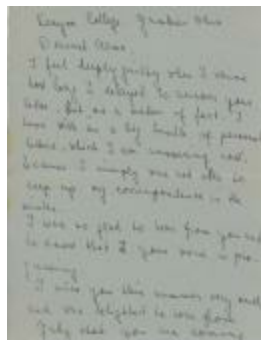 Kenyon College Gambier Ohio
Dearest
I feel deeply guilty when I
how long I delayed to answer your
letter. But as a matter of fact I
have with me a big bundle of personal
letters, which I am answering now,
because I simply was not able to
keep up my correspondence in the
I was so glad to hear from you and
to know that your voice is pro-
gressing.
I miss you this summer very much
and was delighted to hear from
that you are coming